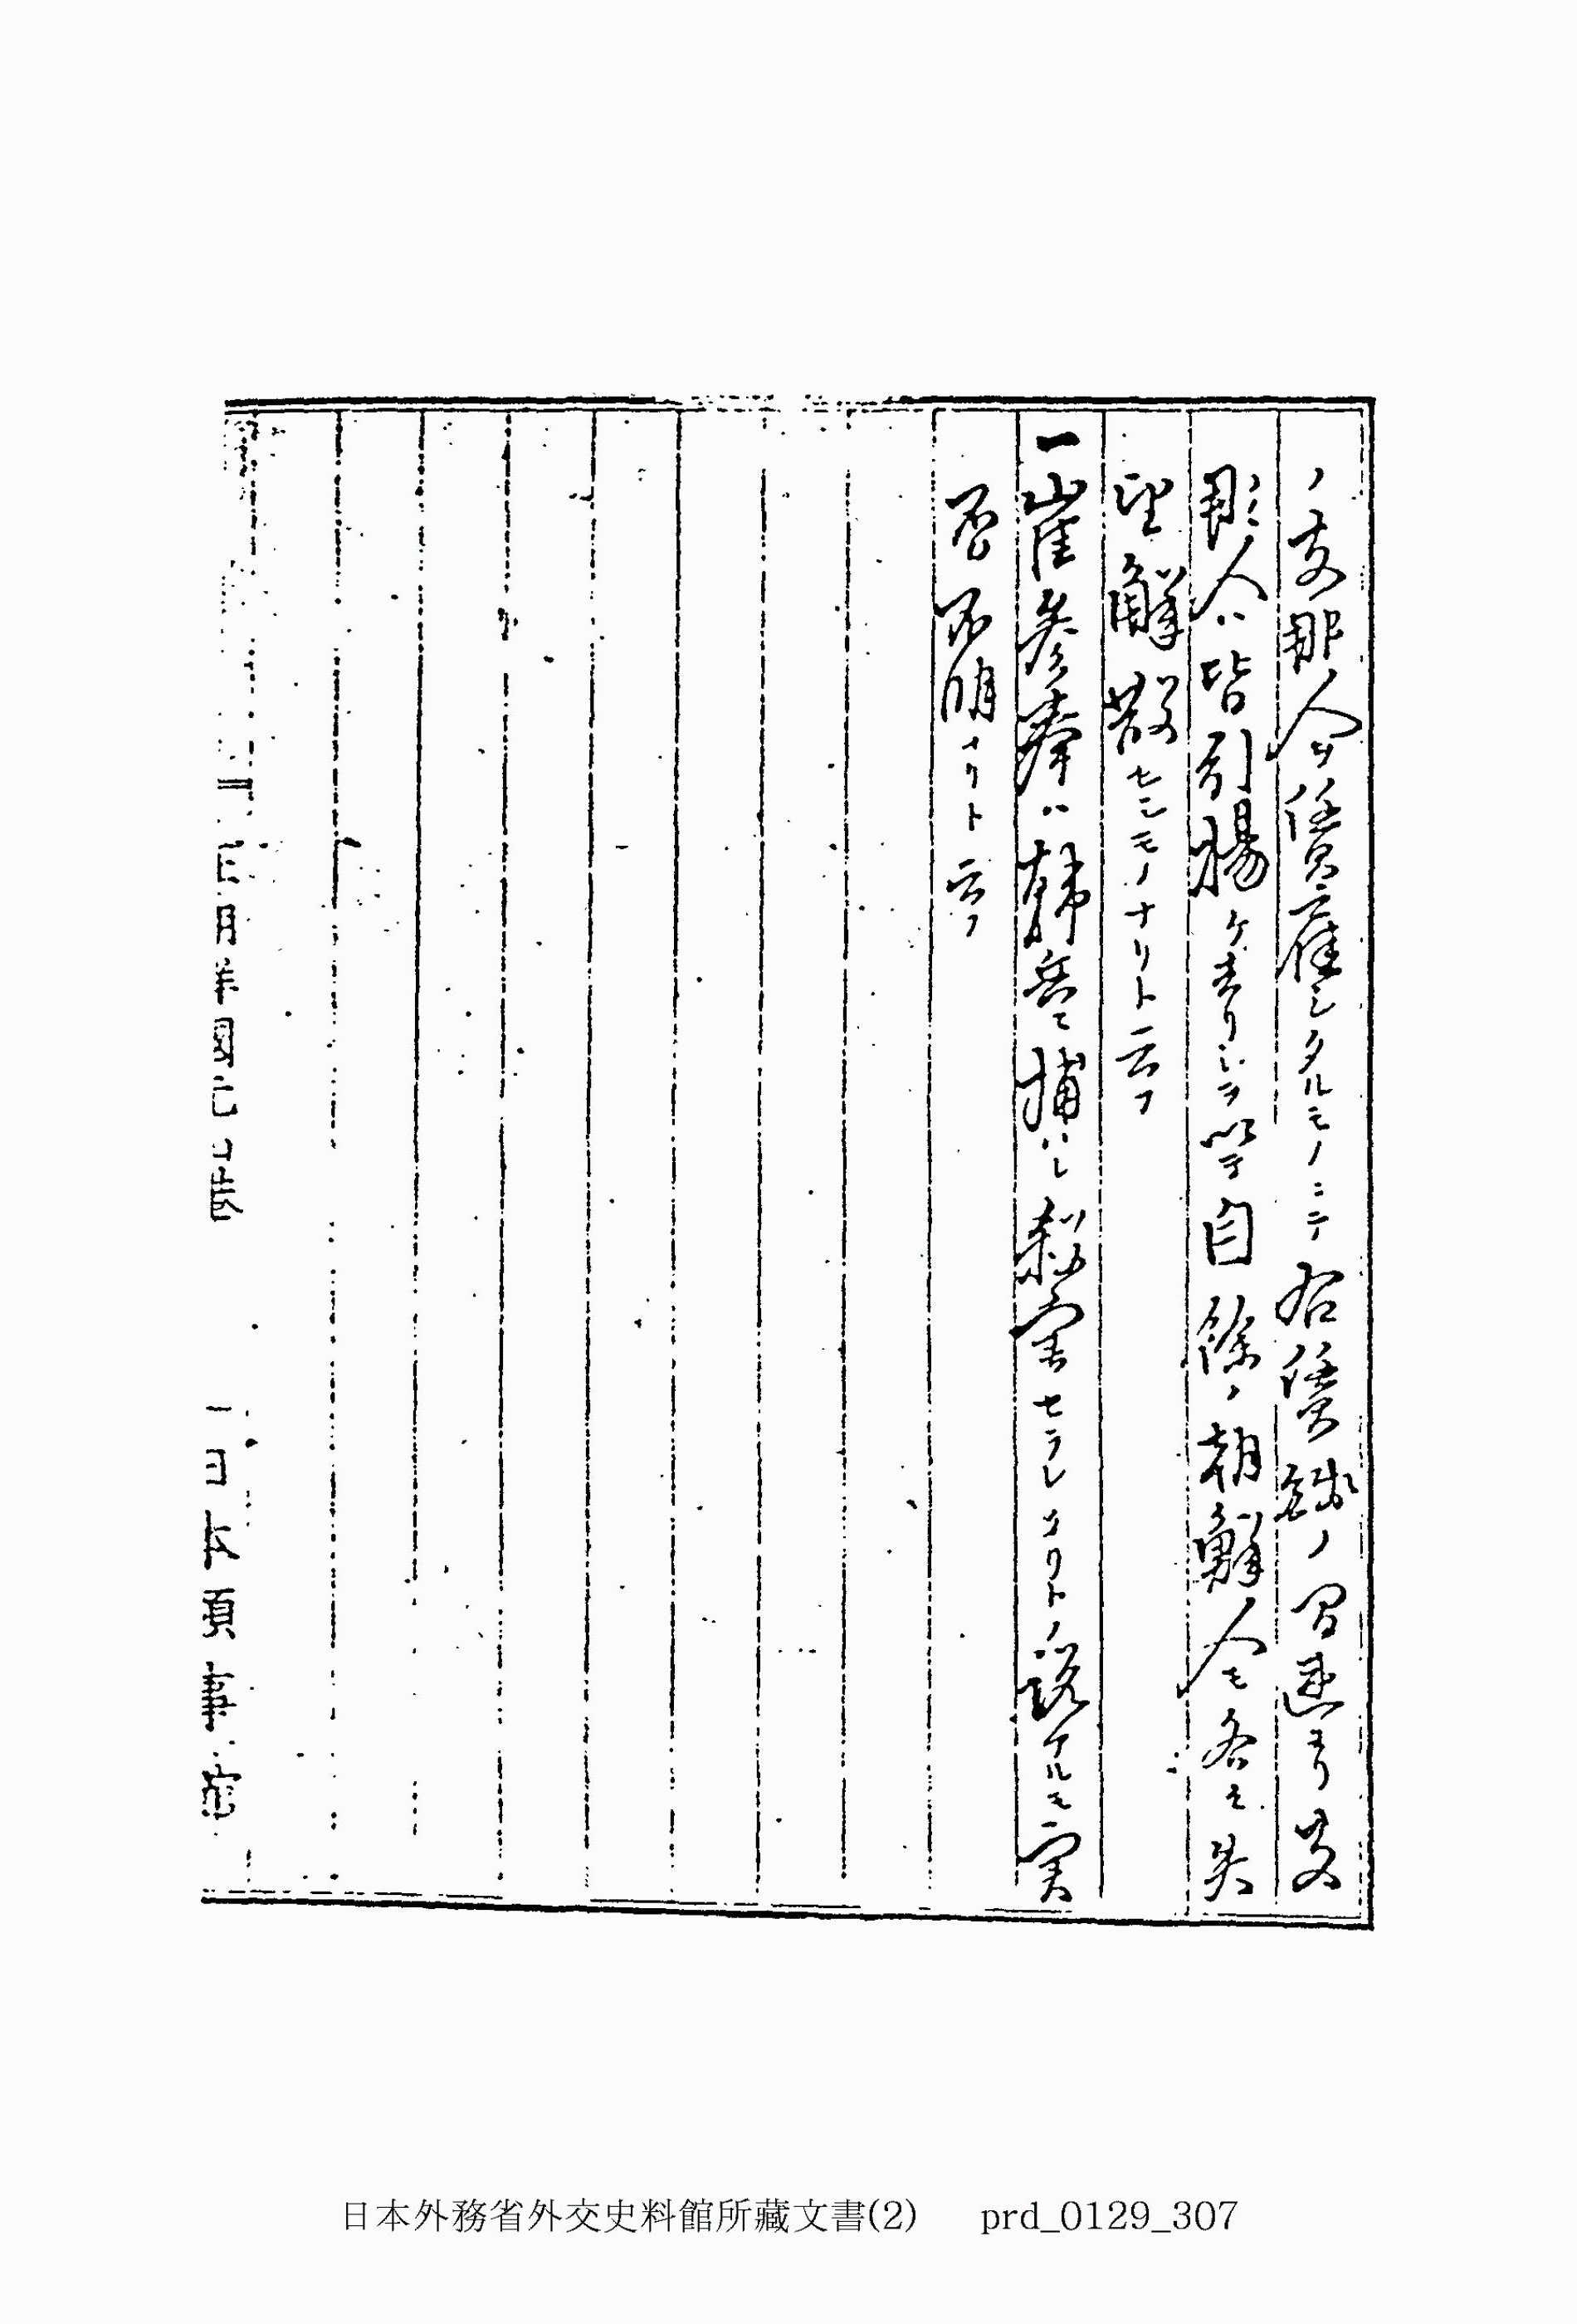 ノ支那人ヲ賃雇シタルモノニテ右賃錢ノ間違ヨリ支
那人ハ皆引揚ケ去リシヲ以テ自餘ノ朝鮮人モ各々失
望解散セシモノナリト云フ
一崔参奉ハ韓兵ニ捕ハレ殺害セラレタリトノ説アルモ実
否不明ナリト云フ
日本領事館
日本外務省外交史料館所藏文書(2) prd_0129_307